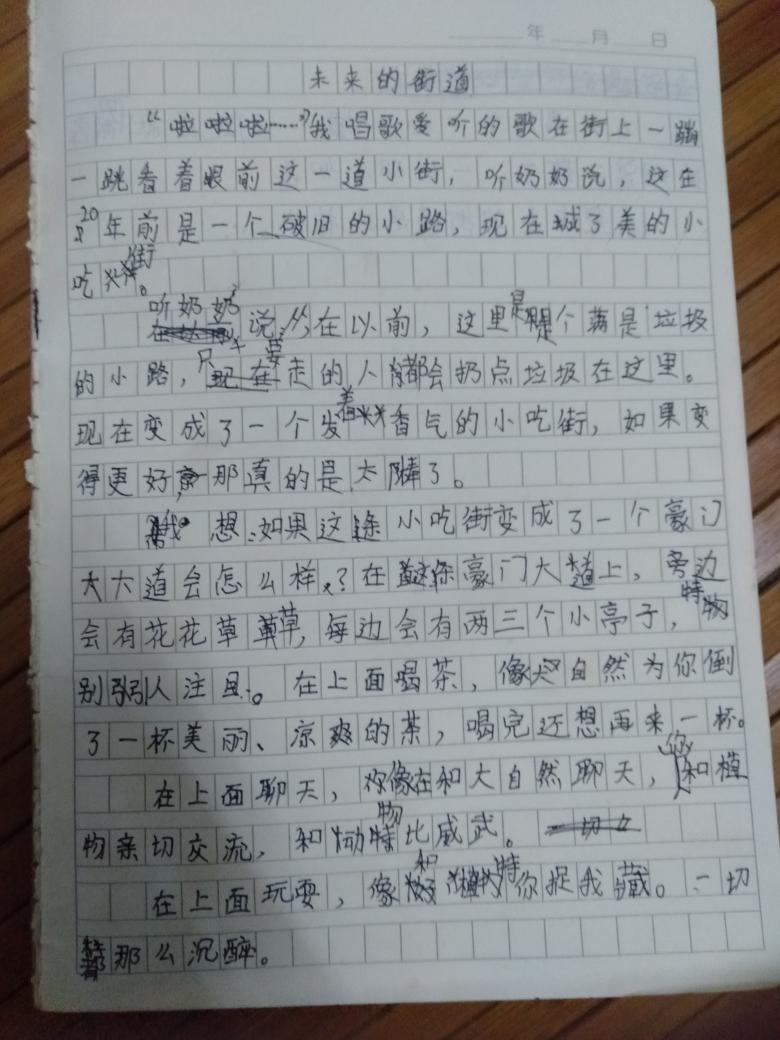 年 月 日
未来的街道
“啦啦啦……”我唱歌爱听的歌在街上一蹦
一跳看着眼前这一道小街，听奶奶说，这在
20年前是一个破旧的小路，现在城了美的小
吃街。
听奶奶说，在以前，这里是个满是垃圾
的小路，只要走的人都会扔点垃圾在这里。
现在变成了一个发着香气的小吃街，如果变
得更好，那真的是太棒了。
我想：如果这小吃街变成了一个豪门
大大道会怎么样？在这条豪门大道上，旁边
会有花花草草，每边会有两三个小亭子，特
别引人注目。在上面喝茶，像大自然为你倒
了一杯美丽、凉爽的茶，喝完还想再来一杯。
在上面聊天，你像在和大自然聊天，你和植
物亲切交流，和动物比威武。
在上面玩耍，像和你捉我藏。一切
都那么沉醉。